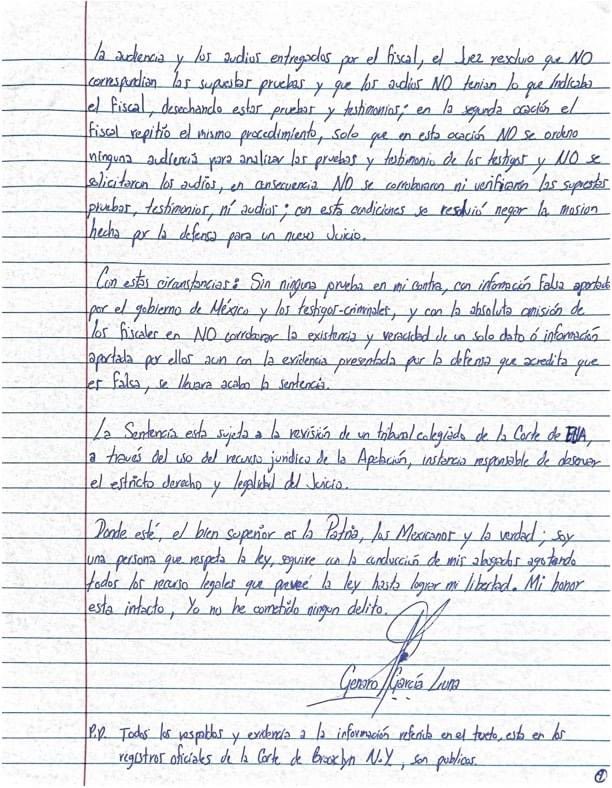 la audiencia y los audios entregados por el fiscal, el Juez resolvio que NO
correspondian las supuestas pruebas y que los audios NO tenian lo que indicaba
el Fiscal, desechando estas pruebas y testimonios; en la segunda ocación el
Fiscal repitió el mismo procedimiento, solo que en esta ocación NO se ordeno
ninguna audiencia para analizar las pruebas y testimonio de los testigos y NO se
solicitaron los audios, en consecuencia NO se corroboraron ni verificaron las supuestas
pruebas, testimonios, ni audios; con estas condiciones se resolvió negar la mosion
hecha por la defensa para un nuevo Juicio.
Con estas circunstancias: Sin ninguna prueba en mi contra, con información Falsa aportada
por el gobierno de México y los testigos-criminales, y con la absoluta omisión de
los fiscales en NO corroborar la existencia y veracidad de un solo dato ó información
aportada por ellos aun con la evidencia presentada por la defensa que acredita que
es falsa, se llevara acabo la sentencia.
La Sentencia esta sujeta a la revisión de un tribunal colegiado de la Corte de EUA,
a través del uso del recurso juridico de la Apelación, instancia responsable de observar
el estricto derecho y legalidad del Juicio.
Donde esté, el bien superior es la Patria, los Mexicanos y la verdad; soy
una persona que respeta la ley, seguire con la conducción de mis abogados agotando
todos los recurso legales que preveé la ley hasta lograr mi libertad. Mi honor
esta intacto, Yo no he cometido ningun delito.
Genaro García Luna
P.D. Todos los respaldos y evidencia a la información referida en el texto, esta en los
registros oficiales de la Corte de Brooclyn N.Y, son publicos.